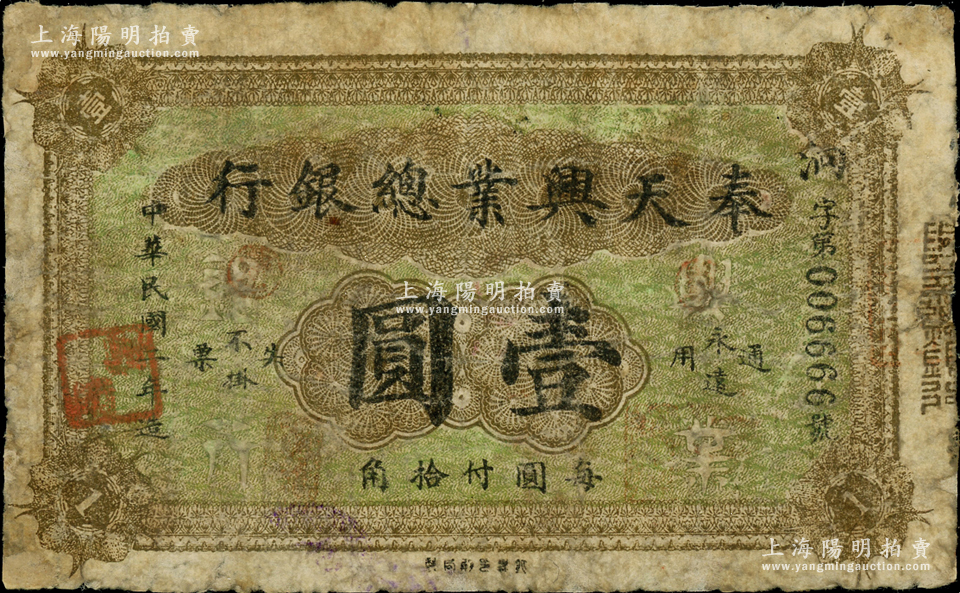 上海陽明拍賣
www.yangmingauction.com
奉天興業總銀行
字第0009966號
壹圓
永遠通用
失票不掛
每圓付拾角
中華民國二年造
興業
壹
1
1
上海陽明拍賣
www.yangmingauction.com
上海陽明拍賣
www.yangmingauction.com